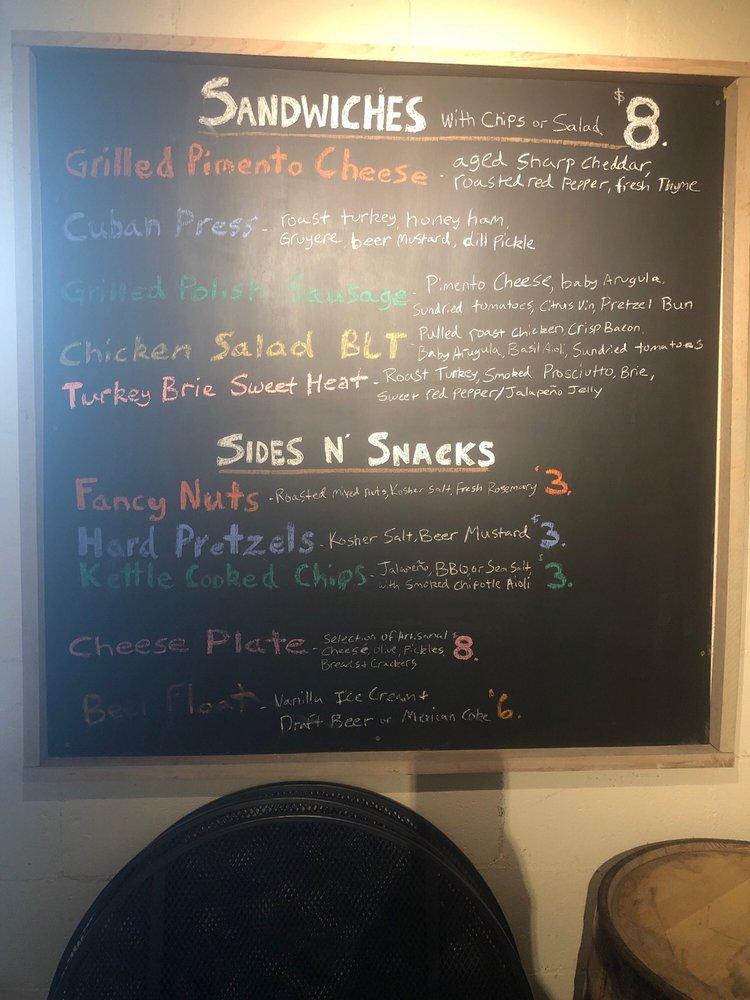 SANDWICHES with Chips or Salad $8.
Grilled Pimento Cheese - aged sharp cheddar,
roasted red Pepper, fresh Thyme
Cuban Press - roast turkey, honey ham,
Gruyere, beer Mustard, dill Pickle
Grilled Polish Sausage - Pimento Cheese, baby Arugula,
Sundried tomatoes, Citrus Vin, Pretzel Bun
Chicken Salad BLT - Pulled roast Chicken, Crisp Bacon,
Baby Arugula, Basil Aioli, Sundried tomatoes
Turkey Brie Sweet Heat - Roast Turkey, Smoked Prosciutto, Brie,
Sweet red pepper/Jalapeño Jelly
SIDES N' SNACKS
Fancy Nuts - Roasted mixed nuts, Kosher salt, Fresh Rosemary $3.
Hard Pretzels - Kosher Salt, Beer Mustard $3.
Kettle Cooked Chips - Jalapeño, BBQ or Sea Salt,
with Smoked Chipotle Aioli $3.
Cheese Plate - Selection of Artisanal
Cheese, olive, Pickles,
Breads + Crackers $8.
Beer Float - Vanilla Ice Cream +
Draft Beer or Mexican Coke $6.